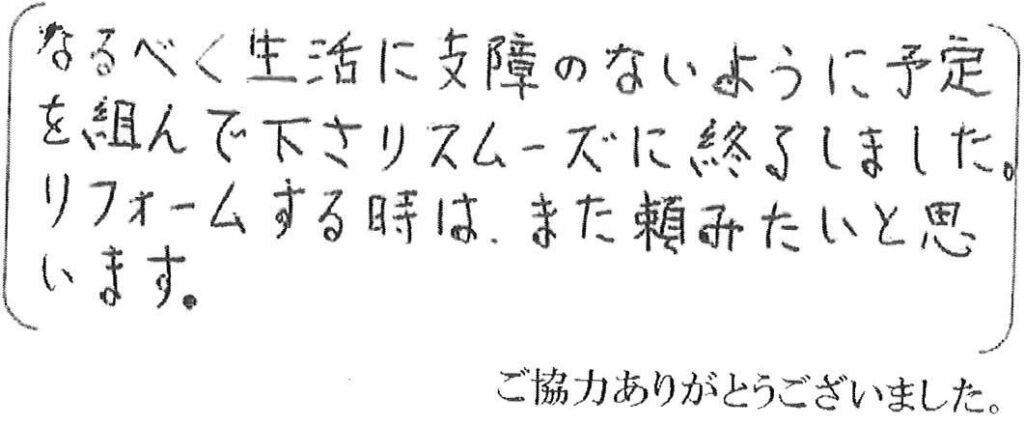 なるべく生活に支障のないように予定
を組んで下さりスムーズに終了しました。
リフォームする時は、また頼みたいと思
います。
ご協力ありがとうございました。